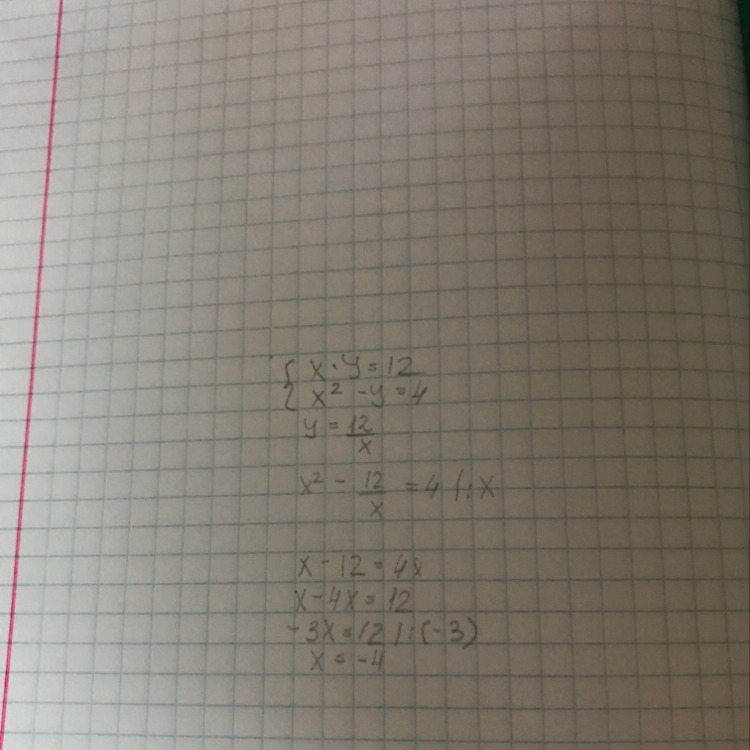 { x · y = 12
{ x² - y = 4
y = 12/x
x² - 12/x = 4 |: x
x - 12 = 4x
x - 4x = 12
-3x = 12 |: (-3)
x = -4